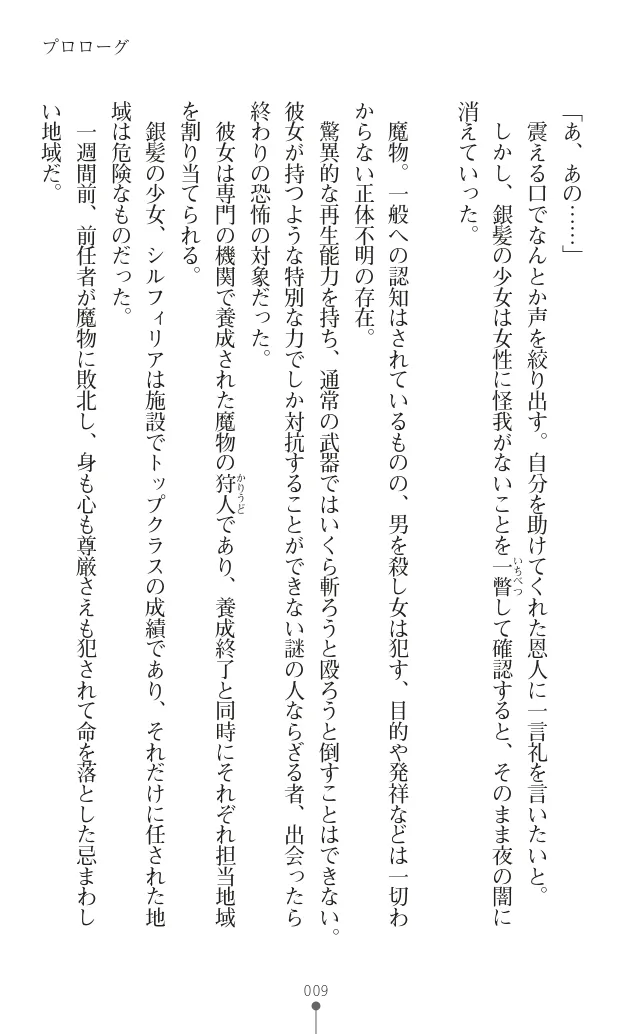 プロローグ
「あ、あの……」
　震える口でなんとか声を絞り出す。自分を助けてくれた恩人に一言礼を言いたいと。
　しかし、銀髪の少女は女性に怪我がないことを一瞥して確認すると、そのまま夜の闇に
いちべつ
消えていった。
　魔物。一般への認知はされているものの、男を殺し女は犯す、目的や発祥などは一切わ
からない正体不明の存在。
　驚異的な再生能力を持ち、通常の武器ではいくら斬ろうと殴ろうと倒すことはできない。
彼女が持つような特別な力でしか対抗することができない謎の人ならざる者、出会ったら
終わりの恐怖の対象だった。
　彼女は専門の機関で養成された魔物の狩人であり、養成終了と同時にそれぞれ担当地域
かりうど
を割り当てられる。
　銀髪の少女、シルフィリアは施設でトップクラスの成績であり、それだけに任された地
域は危険なものだった。
　一週間前、前任者が魔物に敗北し、身も心も尊厳さえも犯されて命を落とした忌まわし
い地域だ。
009